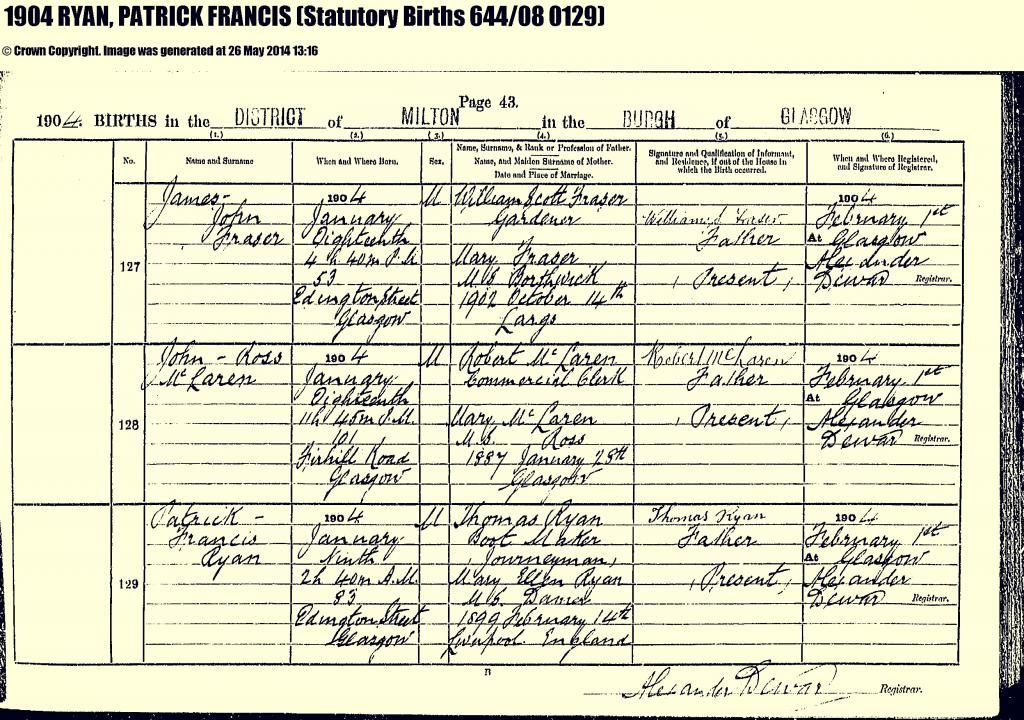 1904 RYAN, PATRICK FRANCIS (Statutory Births 644/08 0129)
© Crown Copyright. Image was generated at 26 May 2014 13:16
Page 43.
1904. BIRTHS in the DISTRICT of MILTON in the BURGH of GLASGOW
(1.) (2.) (3.) (4.) (5.) (6.)
No.
Name and Surname
When and Where Born.
Sex.
Name, Surname, & Rank or Profession of Father.
Name, and Maiden Surname of Mother.
Date and Place of Marriage.
Signature and Qualification of Informant,
and Residence, if out of the House in
which the Birth occurred.
When and Where Registered,
and Signature of Registrar.
127
James -
John
Fraser
1904
January
Eighteenth
4 h 40m P.M.
53
Edington Street
Glasgow
M
William Scott Fraser
Gardener
Mary Fraser
M.S. Borthwick
1902 October 14th
Largs
William S Fraser
Father
(Present)
1904
February 1st
At Glasgow
Alexander
Dewar Registrar.
128
John - Ross
McLaren
1904
January
Eighteenth
11h 45m P.M.
101
Firhill Road
Glasgow
M
Robert McLaren
Commercial Clerk
Mary McLaren
M.S. Ross
1887 January 28th
Glasgow
Robert McLaren
Father
(Present)
1904
February 1st
At Glasgow
Alexander
Dewar Registrar.
129
Patrick -
Francis
Ryan
1904
January
Ninth
2h 40m A.M.
83
Edington Street
Glasgow
M
Thomas Ryan
Boot Maker
(Journeyman)
Mary Ellen Ryan
M.S.
1899 February 14th
Liverpool England
Thomas Ryan
Father
(Present)
1904
February 1st
At Glasgow
Alexander
Dewar Registrar.
Alexander Dewar Registrar.